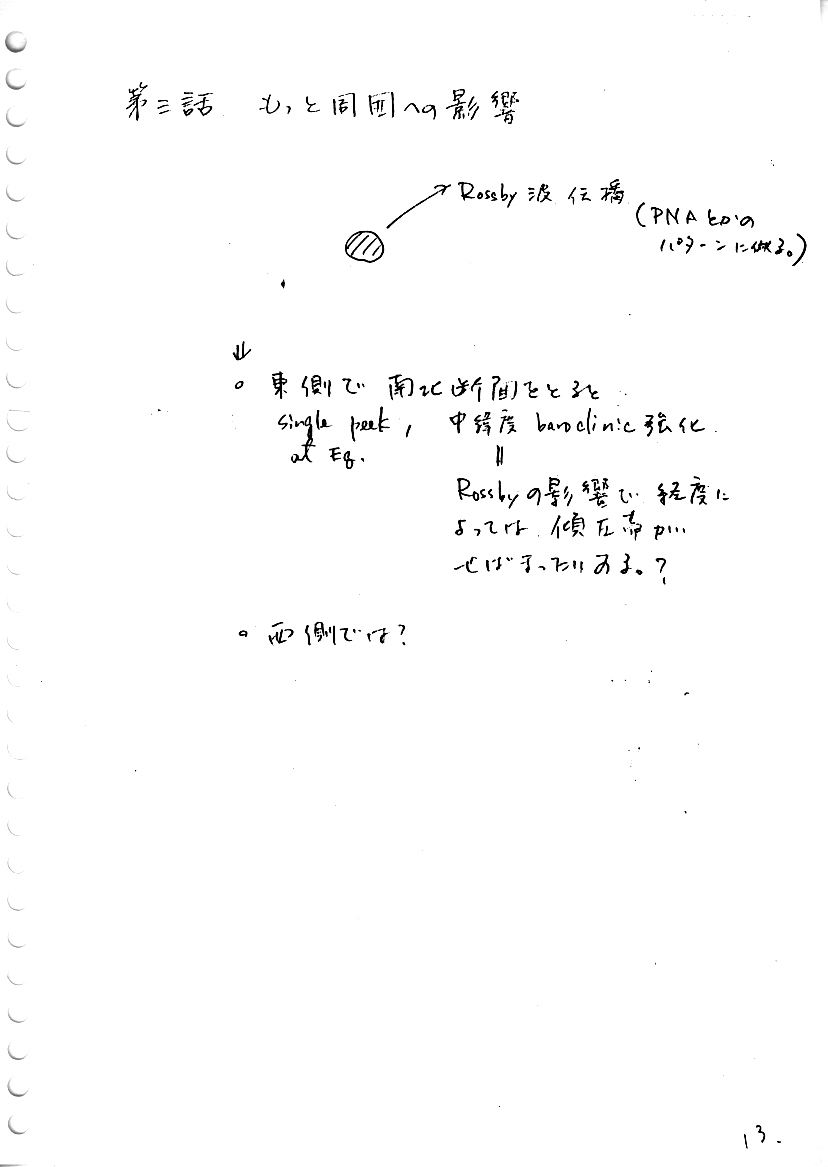 第三話 もっと周囲への影響
Rossby 波 伝播
(PNAとかの
パターンに似る。)
⇓
○ 東側で 南北断面をとると
single peek, 中緯度 baroclinic 強化
at Eq.
||
Rossbyの影響で 経度に
よっては 傾圧帯が
せばまったりする。?
○ 西側では?
13.